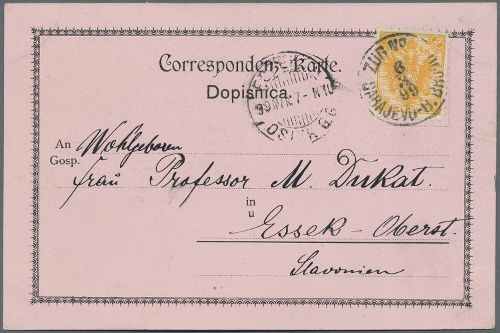 Correspondenz-Karte.
Dopisnica.
ZUG No
6
99
SARAJEVO-B. BROD
99 N
7-N10
OSIEK
An Wohlgeboren
Gosp.
Frau Professor M. Dukat.
in
u Essek-Oberst.
Slavonien